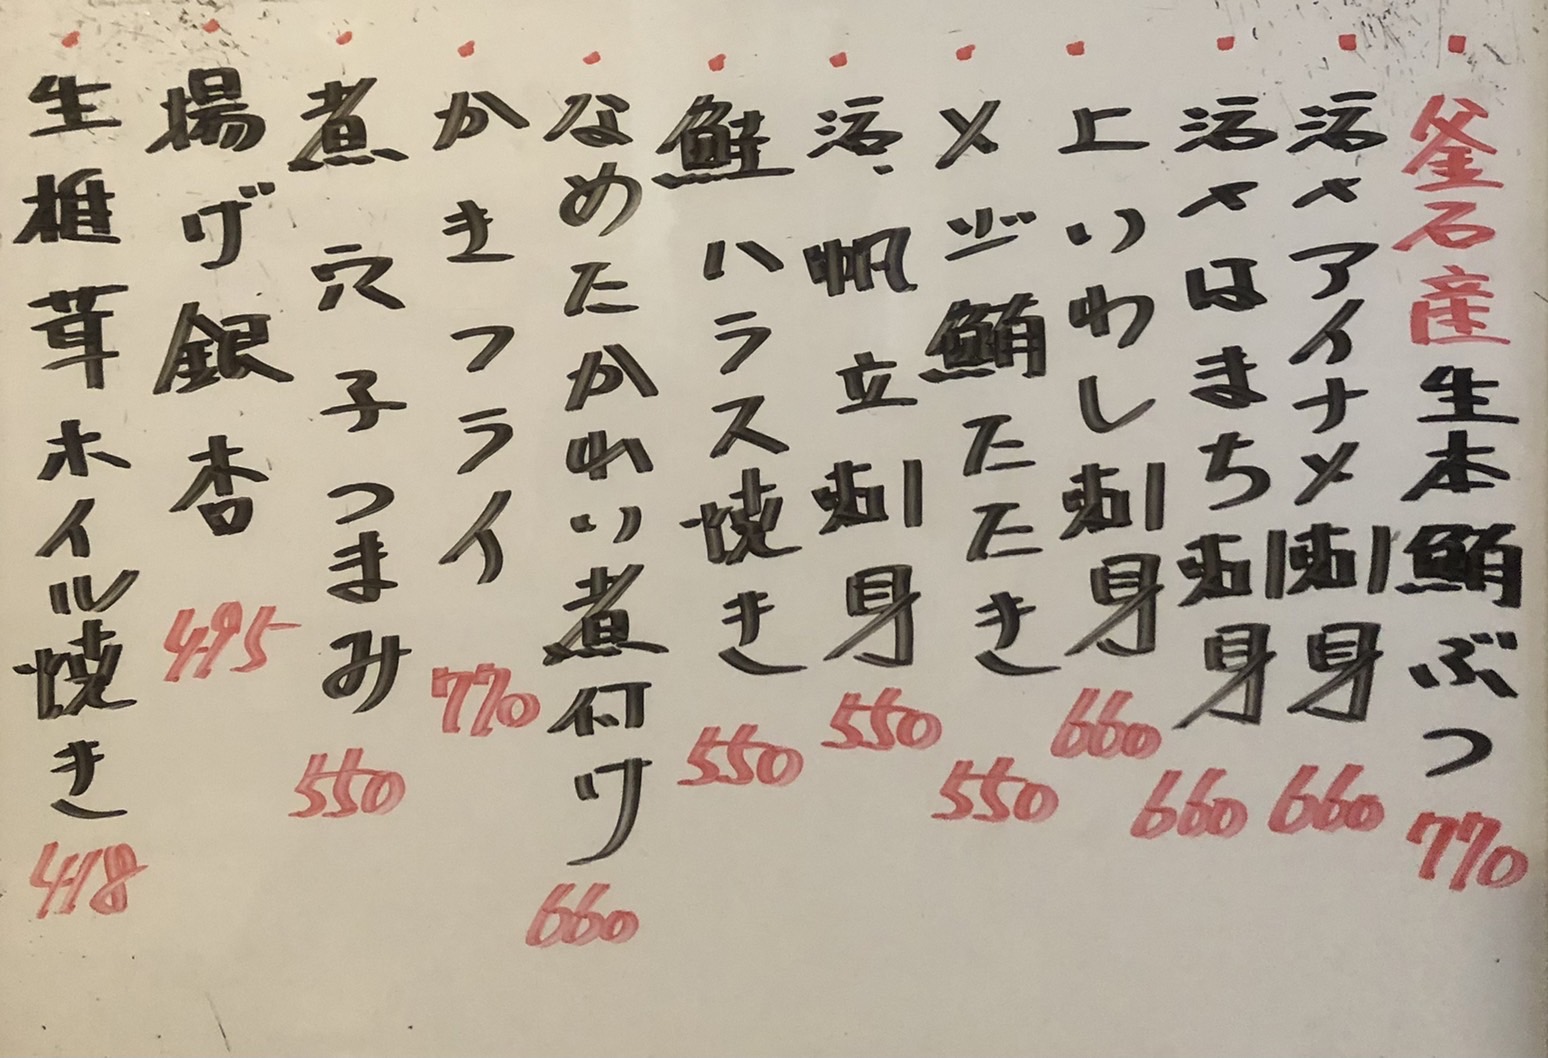 釜石産生本鮪ぶつ 770
活〆アイナメ刺身 660
活〆はまち刺身 660
上いわし刺身 660
メジ鮪たたき 550
活帆立刺身 550
鮭ハラス焼き 550
なめたかれい煮付け 660
かきフライ 770
煮穴子つまみ 550
揚げ銀杏 495
生椎茸ホイル焼き 418